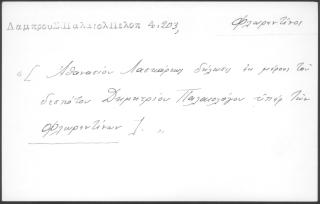 ΛαμπρουΣ:ΠαλαιολΠελοπ 4.203,
Φλωρεντῖνος
«[ Ἀθανασίου Λασκάρεως δήλωσις ἐκ μέρους τοῦ
δεσπότου Δημητρίου Παλαιολόγου ὑπὲρ τῶν
Φλωρεντίνων ] . „